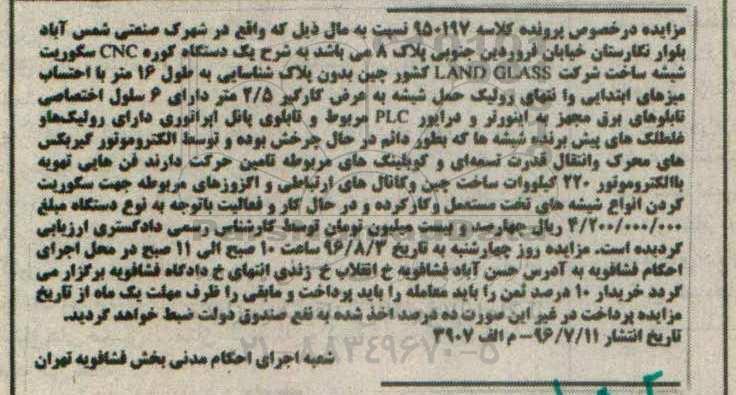 مزایده درخصوص پرونده کلاسه ۹۵۰۱۹۷ نسبت به مال ذیل که واقع در شهرک صنعتی شمس آباد
بلوار نگارستان خیابان فروردین جنوبی پلاک ۸ می باشد به شرح یک دستگاه کوره CNC سکوریت
شیشه ساخت شرکت LAND GLASS کشور چین بدون پلاک شناسایی به طول ۱۶ متر با احتساب
میزهای ابتدایی وا نتهای رولیک حمل شیشه به عرض کارگیر ۲/۵ متر دارای ۶ سلول اختصاصی
تابلوهای برق مجهز به اینورتر و درایور PLC مربوط و تابلوی پانل اپراتوری دارای رولیکهاو
غلطلک های پیش برنده شیشه ها که بطور دائم در حال چرخش بوده و توسط الکتروموتور گیربکس
های محرک وانتقال قدرت تسمه‌ای و کوپلینگ های مربوطه تامین حرکت دارند فن هایی تهویه
باالکتروموتور ۲۲۰ کیلووات ساخت چین وکانال های ارتباطی و اگزوزهای مربوطه جهت سکوریت
کردن انواع شیشه های تخت مستعمل وکارکرده و در حال کار و فعالیت باتوجه به نوع دستگاه مبلغ
۴/۲۰۰/۰۰۰/۰۰۰ ریال چهارصد و بیست میلیون تومان توسط کارشناس رسمی دادگستری ارزیابی
گردیده است. مزایده روز چهارشنبه به تاریخ ۹۶/۸/۳ ساعت ۱۰ صبح الی ۱۱ صبح در محل اجرای
احکام فشافویه به آدرس حسن آباد فشافویه خ انقلاب خ زندی انتهای خ دادگاه فشافویه برگزار می
گردد خریدار ۱۰ درصد ثمن را باید معامله را باید پرداخت و مابقی را ظرف مهلت یک ماه از تاریخ
مزایده پرداخت در غیر این صورت ده درصد اخذ شده به نفع صندوق دولت ضبط خواهد گردید.
تاریخ انتشار ۹۶/۷/۱۱- م الف ۳۹۰۷
۰۲۱-۸۸۳۴۹۶۷۰-۵
شعبه اجرای احکام مدنی بخش فشافویه تهران